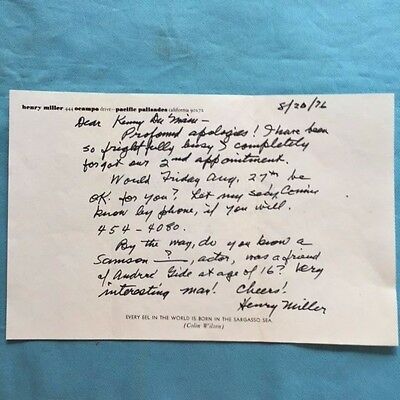 henry miller 444 ocampo drive – pacific palisades california 90272
8/20/76
Dear Kenny
Profound apologies! I have been
so frightfully busy I completely
forgot our 2nd appointment.
Would Friday Aug. 27th be
OK. for you? Let my secty. Connie
know by phone, if you will.
454 – 4080.
By the way, do you know a
Samson ?, actor, was a friend
of André Gide at age of 16? Very
interesting man! Cheers!
Henry Miller
EVERY EEL IN THE WORLD IS BORN IN THE SARGASSO SEA.
(Colin Wilson)